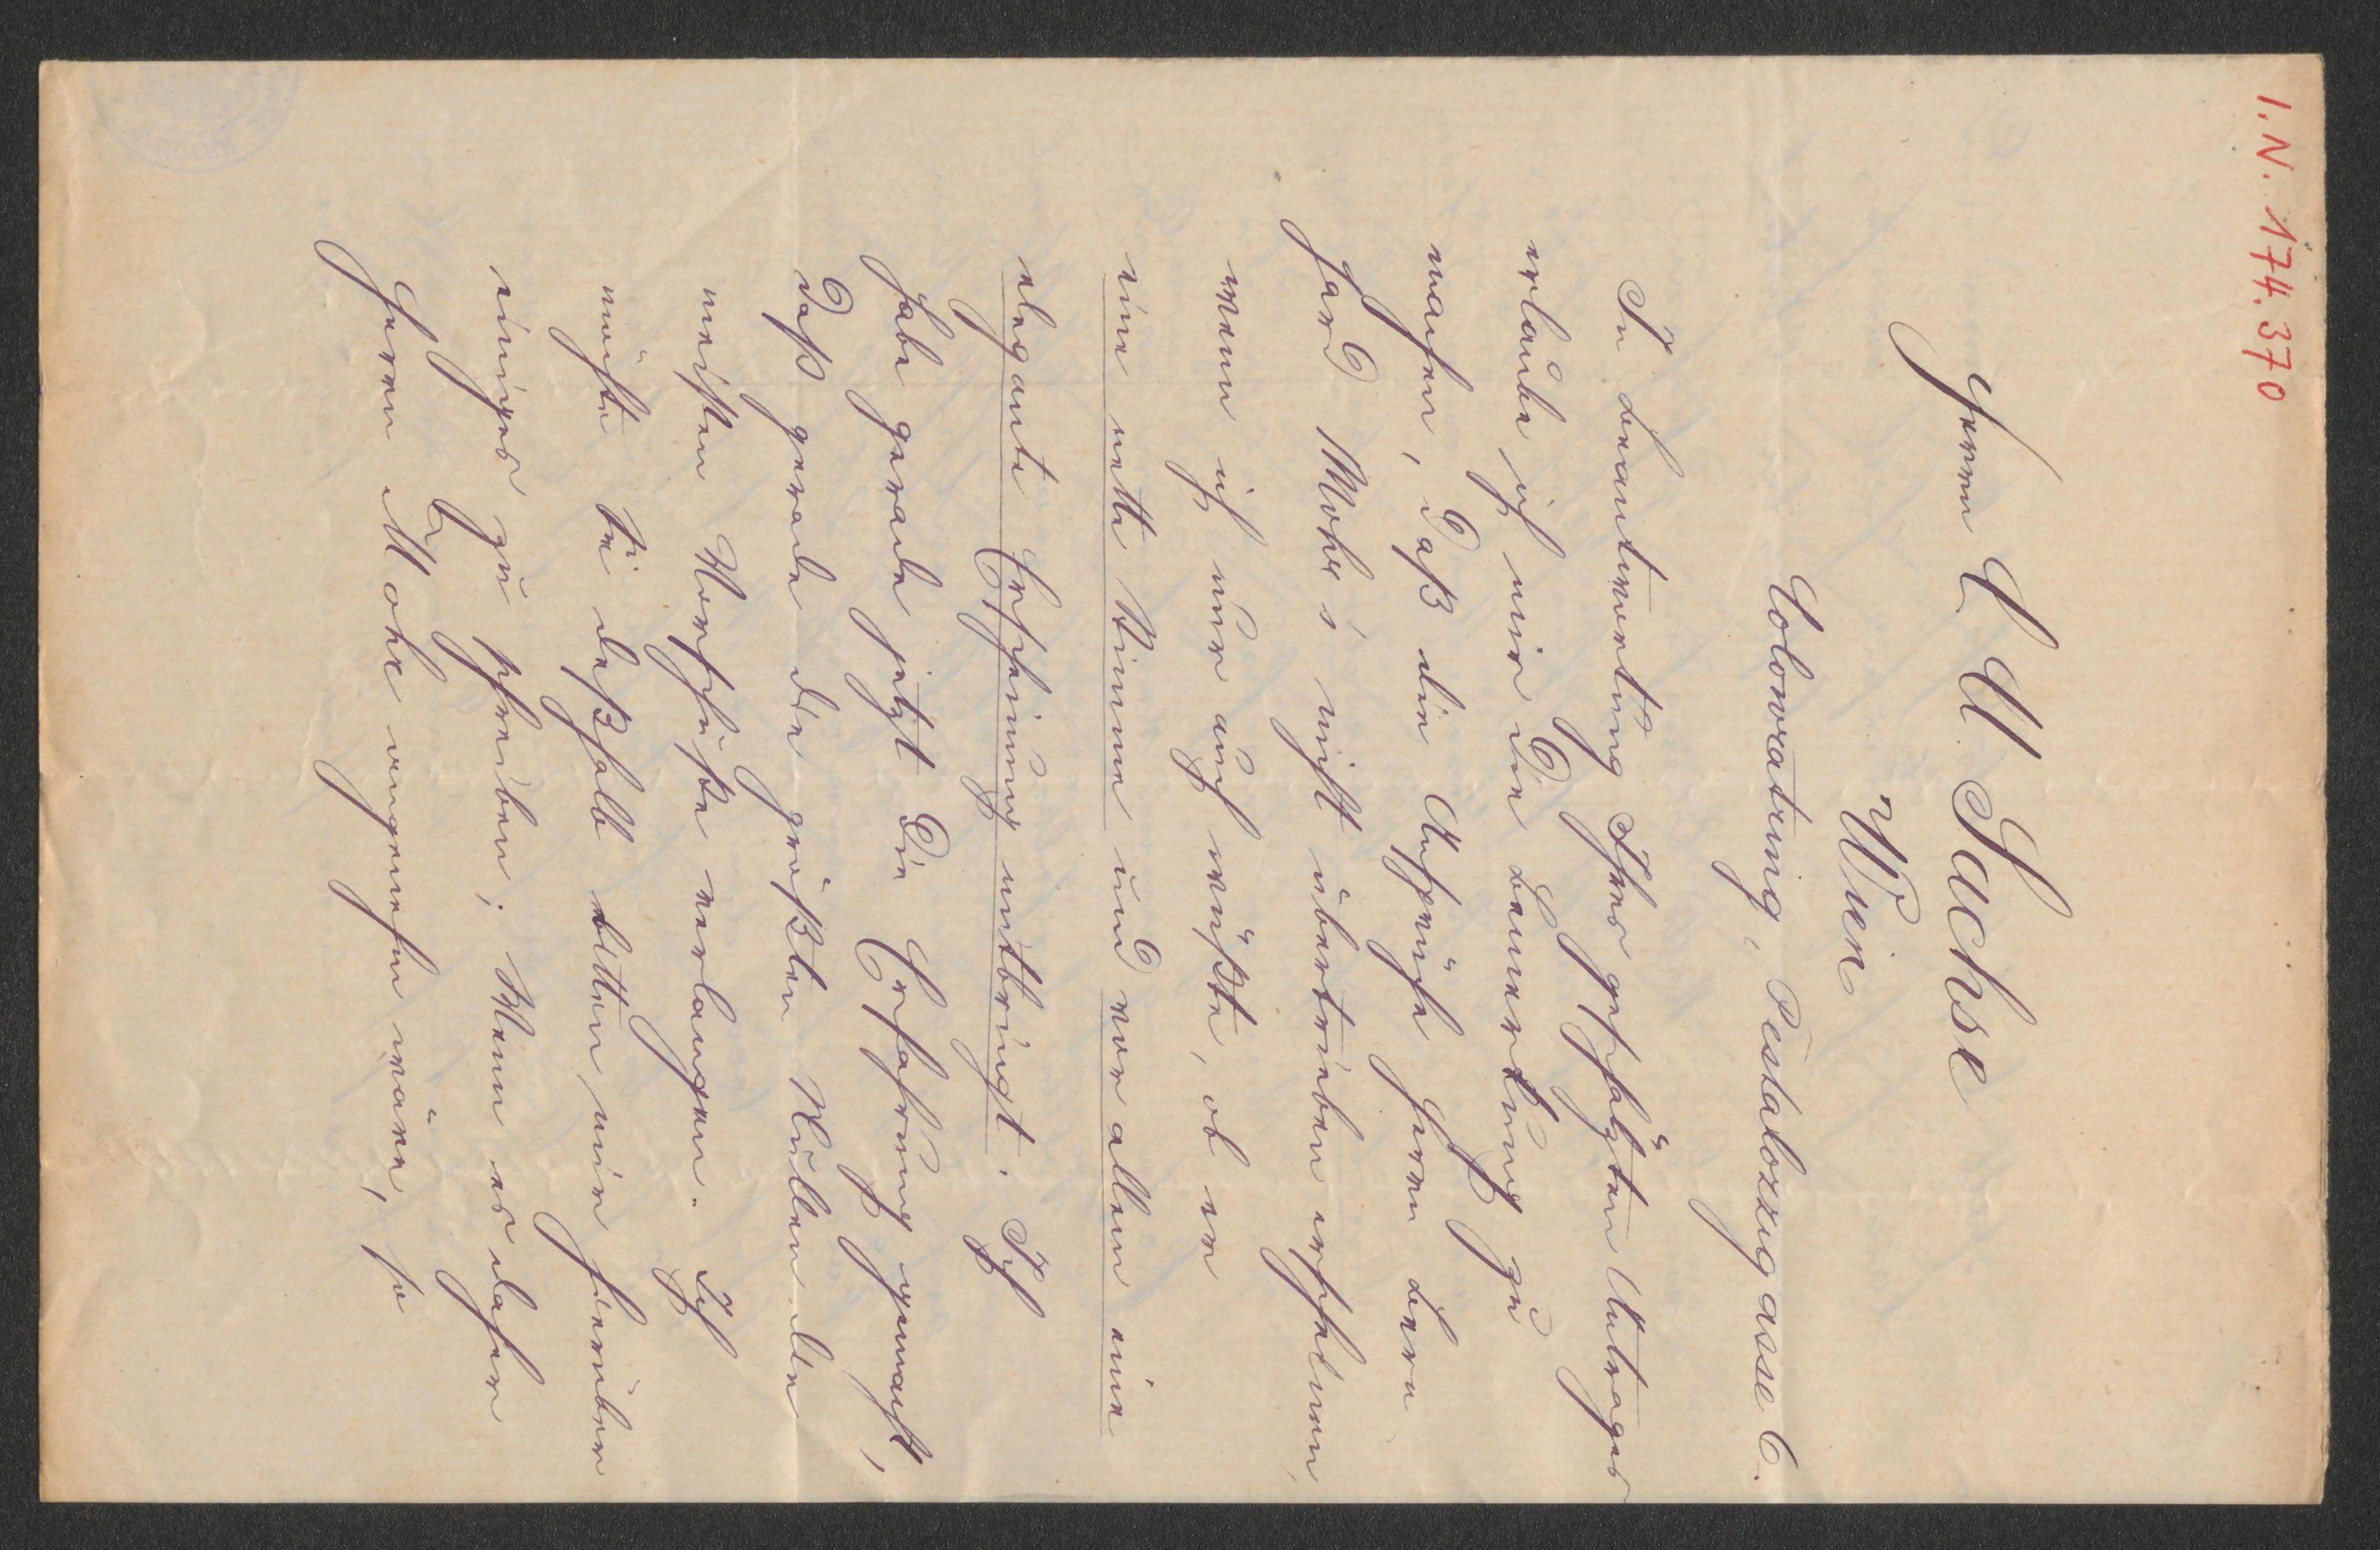 I.N. 174.370
Herrn C A Sachse
Wien
Colowratring, Pestalozzigasse 6.
In Beantwortung Ihres geschätzten Antrages
erlaube ich mir die Bemerkung zu
machen, daß die Ansprüche Herrn Bern
hard Mohr's nicht übertrieben erscheinen,
wenn ich nur auch wüßte, ob er
eine nette Stimme und vor allem eine
elegante Erscheinung mitbringt. Ich
habe gerade jetzt die Erfahrung gemacht,
daß gerade die größten Nullen den
meisten Vorschuße verlangen. Ich
möchte Sie deßhalb bitten, mir hierüber
einiges zu schreiben; Wenn es daher
Herrn Mohr angenehm wäre, so